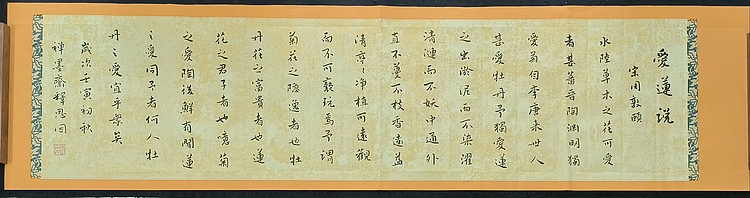 愛蓮说
宋周敦頤
水陸草木之花可愛
者甚蕃晋陶淵明獨
愛菊自李唐来世人
甚爱牡丹予獨爱蓮
之出淤泥而不染濯
清漣而不妖中通外
直不蔓不枝香遠益
清亭々净植可遠觀
而不可亵玩焉予謂
菊花之隐逸者也牡
丹花之富貴者也蓮
花之君子者也噫菊
之爱陶後鮮有聞蓮
之爱同予者何人牡
丹之爱宜乎衆矣
歲次壬寅初秋
禅墨齋釋